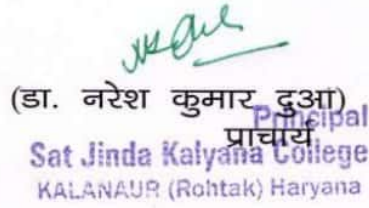 (डा. नरेश कुमार दुआ)
Principal
प्राचार्य
Sat Jinda Kalyana College
KALANAUR (Rohtak) Haryana